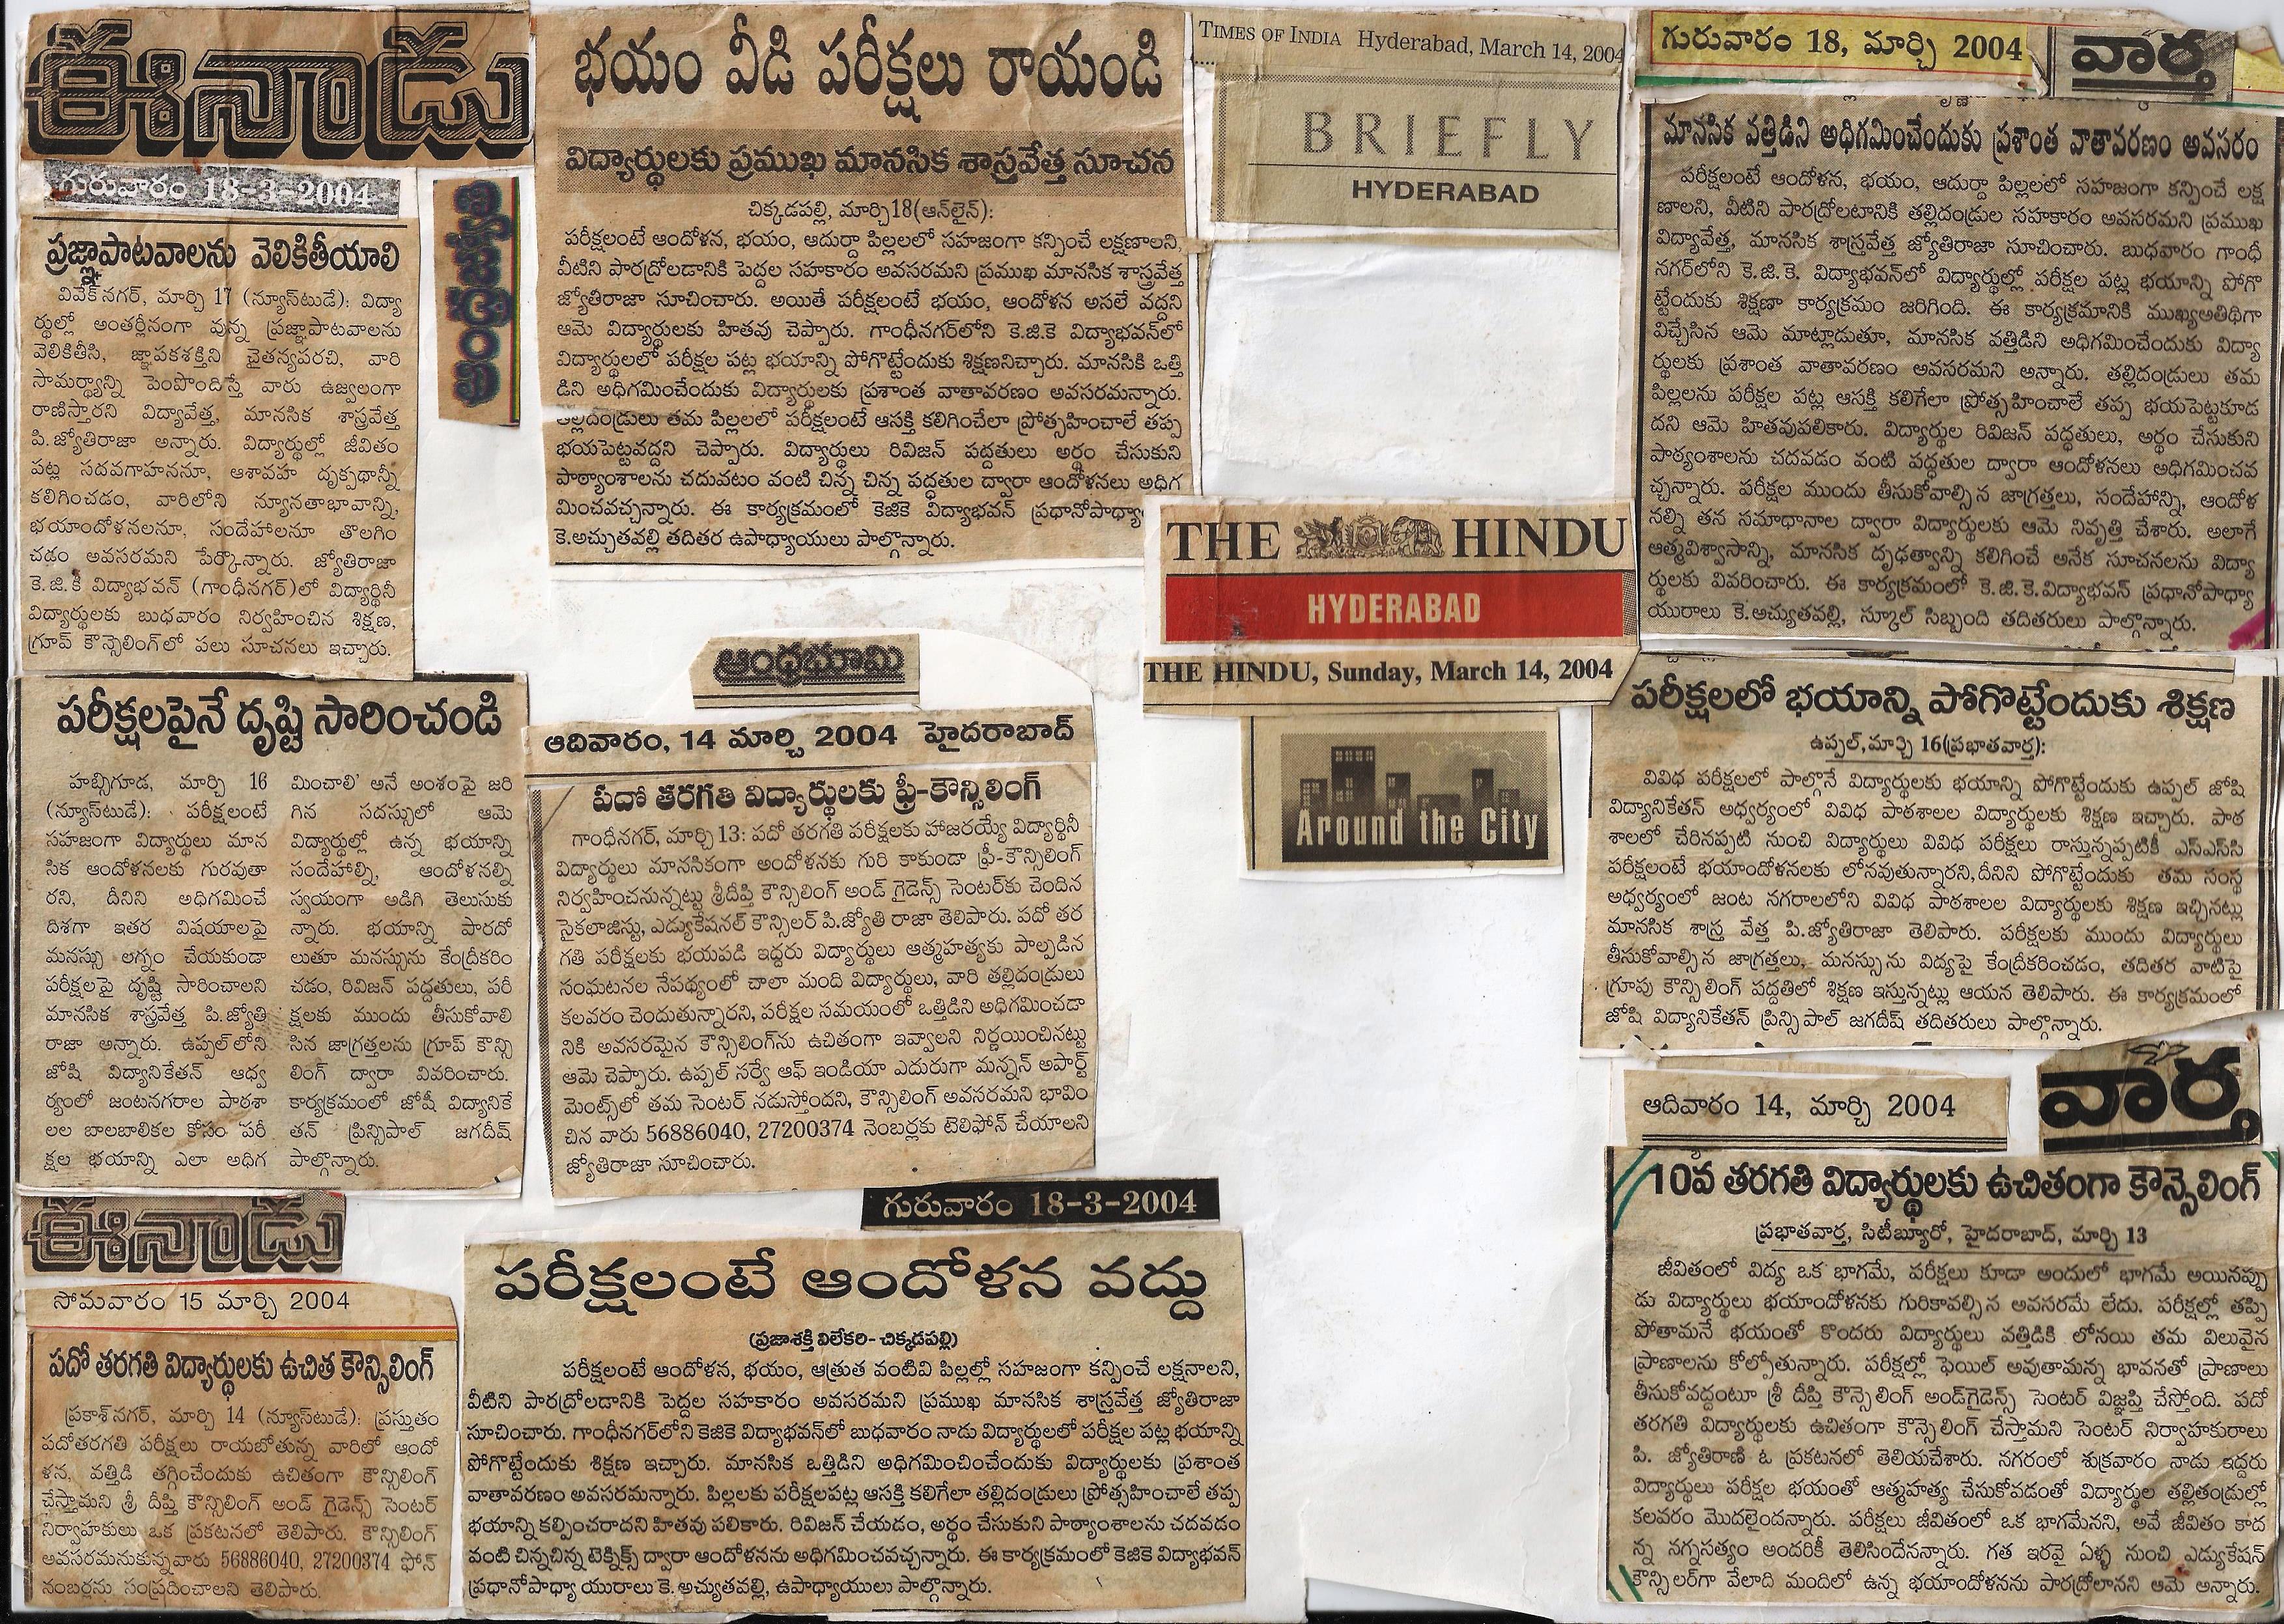 ఈనాడు
గురువారం 18-3-2004
ప్రజ్ఞాపాటవాలను వెలికితీయాలి
వివేక్ నగర్, మార్చి 17 (న్యూస్‌టుడే): విద్యా
ర్థుల్లో అంతర్లీనంగా వున్న ప్రజ్ఞాపాటవాలను
వెలికితీసి, జ్ఞాపకశక్తిని చైతన్యపరచి, వారి
సామర్థ్యాన్ని పెంపొందిస్తే వారు ఉజ్వలంగా
రాణిస్తారని విద్యావేత్త, మానసిక శాస్త్రవేత్త
పి.జ్యోతిరాజా అన్నారు. విద్యార్థుల్లో జీవితం
పట్ల సదవగాహననూ, ఆశావహ దృక్పథాన్నీ
కలిగించడం, వారిలోని న్యూనతాభావాన్ని,
భయాందోళనలనూ, సందేహాలనూ తొలగిం
చడం అవసరమని పేర్కొన్నారు. జ్యోతిరాజా
కె.జి.కె విద్యాభవన్ (గాంధీనగర్)లో విద్యార్థినీ
విద్యార్థులకు బుధవారం నిర్వహించిన శిక్షణ,
గ్రూప్ కౌన్సెలింగ్‌లో పలు సూచనలు ఇచ్చారు.
ఆంధ్రజ్యోతి
భయం వీడి పరీక్షలు రాయండి
విద్యార్థులకు ప్రముఖ మానసిక శాస్త్రవేత్త సూచన
చిక్కడపల్లి, మార్చి18(ఆన్‌లైన్):
పరీక్షలంటే ఆందోళన, భయం, ఆదుర్దా పిల్లలలో సహజంగా కన్పించే లక్షణాలని,
వీటిని పారద్రోలడానికి పెద్దల సహకారం అవసరమని ప్రముఖ మానసిక శాస్త్రవేత్త
జ్యోతిరాజా సూచించారు. అయితే పరీక్షలంటే భయం, ఆందోళన అసలే వద్దని
ఆమె విద్యార్థులకు హితవు చెప్పారు. గాంధీనగర్‌లోని కె.జి.కె విద్యాభవన్‌లో
విద్యార్థులలో పరీక్షల పట్ల భయాన్ని పోగొట్టేందుకు శిక్షణనిచ్చారు. మానసికి ఒత్తి
డిని అధిగమించేందుకు విద్యార్థులకు ప్రశాంత వాతావరణం అవసరమన్నారు.
తల్లిదండ్రులు తమ పిల్లలలో పరీక్షలంటే ఆసక్తి కలిగించేలా ప్రోత్సహించాలే తప్ప
భయపెట్టవద్దని చెప్పారు. విద్యార్థులు రివిజన్ పద్దతులు అర్థం చేసుకుని
పాఠ్యాంశాలను చదువటం వంటి చిన్న చిన్న పద్ధతుల ద్వారా ఆందోళనలు అధిగ
మించవచ్చన్నారు. ఈ కార్యక్రమంలో కెజికె విద్యాభవన్ ప్రధానోపాధ్యా
కె.అచ్యుతవల్లి తదితర ఉపాధ్యాయులు పాల్గొన్నారు.
TIMES OF INDIA Hyderabad, March 14, 2004
BRIEFLY
HYDERABAD
THE HINDU
HYDERABAD
THE HINDU, Sunday, March 14, 2004
Around the City
గురువారం 18, మార్చి 2004
వార్త
మానసిక వత్తిడిని అధిగమించేందుకు ప్రశాంత వాతావరణం అవసరం
పరీక్షలంటే ఆందోళన, భయం, ఆదుర్దా పిల్లలలో సహజంగా కన్పించే లక్ష
ణాలని, వీటిని పారద్రోలటానికి తల్లిదండ్రుల సహకారం అవసరమని ప్రముఖ
విద్యావేత్త, మానసిక శాస్త్రవేత్త జ్యోతిరాజా సూచించారు. బుధవారం గాంధీ
నగర్‌లోని కె.జి.కె. విద్యాభవన్‌లో విద్యార్థుల్లో పరీక్షల పట్ల భయాన్ని పోగొ
ట్టేందుకు శిక్షణా కార్యక్రమం జరిగింది. ఈ కార్యక్రమానికి ముఖ్యఅతిథిగా
విచ్చేసిన ఆమె మాట్లాడుతూ, మానసిక వత్తిడిని అధిగమించేందుకు విద్యా
ర్థులకు ప్రశాంత వాతావరణం అవసరమని అన్నారు. తల్లిదండ్రులు తమ
పిల్లలను పరీక్షల పట్ల ఆసక్తి కలిగేలా ప్రోత్సహించాలే తప్ప భయపెట్టకూడ
దని ఆమె హితవుపలికారు. విద్యార్థుల రివిజన్ పద్ధతులు, అర్థం చేసుకుని
పాఠ్యంశాలను చదవడం వంటి పద్ధతుల ద్వారా ఆందోళనలు అధిగమించవ
చ్చన్నారు. పరీక్షల ముందు తీసుకోవాల్సిన జాగ్రత్తలు, సందేహాన్ని, ఆందోళ
నల్ని తన సమాధానాల ద్వారా విద్యార్థులకు ఆమె నివృత్తి చేశారు. అలాగే
ఆత్మవిశ్వాసాన్ని, మానసిక దృఢత్వాన్ని కలిగించే అనేక సూచనలను విద్యా
ర్థులకు వివరించారు. ఈ కార్యక్రమంలో కె.జి.కె.విద్యాభవన్ ప్రధానోపాధ్యా
యురాలు కె.అచ్యుతవల్లి, స్కూల్ సిబ్బంది తదితరులు పాల్గొన్నారు.
పరీక్షలపైనే దృష్టి సారించండి
హబ్సిగూడ, మార్చి 16
(న్యూస్‌టుడే): పరీక్షలంటే
సహజంగా విద్యార్థులు మాన
సిక ఆందోళనలకు గురవుతా
రని, దీనిని అధిగమించే
దిశగా ఇతర విషయాలపై
మనస్సు లగ్నం చేయకుండా
పరీక్షలపై దృష్టి సారించాలని
మానసిక శాస్త్రవేత్త పి.జ్యోతి
రాజా అన్నారు. ఉప్పల్‌లోని
జోషి విద్యానికేతన్ ఆధ్వ
ర్యంలో జంటనగరాల పాఠశా
లల బాలబాలికల కోసం 'పరీ
క్షల భయాన్ని ఎలా అధిగ
మించాలి' అనే అంశంపై జరి
గిన సదస్సులో ఆమె
విద్యార్థుల్లో ఉన్న భయాన్ని
సందేహాల్ని, ఆందోళనల్ని
స్వయంగా అడిగి తెలుసుకు
న్నారు. భయాన్ని పారదో
లుతూ మనస్సును కేంద్రీకరిం
చడం, రివిజన్ పద్దతులు, పరీ
క్షలకు ముందు తీసుకోవాలి
సిన జాగ్రత్తలను గ్రూప్ కౌన్సి
లింగ్ ద్వారా వివరించారు.
కార్యక్రమంలో జోషీ విద్యానికే
తన్ ప్రిన్సిపాల్ జగదీష్
పాల్గొన్నారు.
ఆంధ్రభూమి
ఆదివారం, 14 మార్చి 2004 హైదరాబాద్
పదో తరగతి విద్యార్థులకు ఫ్రీ-కౌన్సిలింగ్
గాంధీనగర్, మార్చి 13: పదో తరగతి పరీక్షలకు హాజరయ్యే విద్యార్థినీ
విద్యార్థులు మానసికంగా అందోళనకు గురి కాకుండా ఫ్రీ-కౌన్సిలింగ్
నిర్వహించనున్నట్టు శ్రీదీప్తి కౌన్సిలింగ్ అండ్ గైడెన్స్ సెంటర్‌కు చెందిన
సైకలాజిస్టు, ఎడ్యుకేషనల్ కౌన్సిలర్ పి.జ్యోతి రాజా తెలిపారు. పదో తర
గతి పరీక్షలకు భయపడి ఇద్దరు విద్యార్థులు ఆత్మహత్యకు పాల్పడిన
సంఘటనల నేపథ్యంలో చాలా మంది విద్యార్థులు, వారి తల్లిదండ్రులు
కలవరం చెందుతున్నారని, పరీక్షల సమయంలో ఒత్తిడిని అధిగమించడా
నికి అవసరమైన కౌన్సిలింగ్‌ను ఉచితంగా ఇవ్వాలని నిర్ణయించినట్టు
ఆమె చెప్పారు. ఉప్పల్ సర్వే ఆఫ్ ఇండియా ఎదురుగా మన్నన్ అపార్ట్
మెంట్స్‌లో తమ సెంటర్ నడుస్తోందని, కౌన్సిలింగ్ అవసరమని భావిం
చిన వారు 56886040, 27200374 నెంబర్లకు టెలిఫోన్ చేయాలని
జ్యోతిరాజా సూచించారు.
పరీక్షలలో భయాన్ని పోగొట్టేందుకు శిక్షణ
ఉప్పల్,మార్చి 16(ప్రభాతవార్త):
వివిధ పరీక్షలలో పాల్గొనే విద్యార్థులకు భయాన్ని పోగొట్టేందుకు ఉప్పల్ జోషి
విద్యానికేతన్ అధ్వర్యంలో వివిధ పాఠశాలల విద్యార్థులకు శిక్షణ ఇచ్చారు. పాఠ
శాలలో చేరినప్పటి నుంచి విద్యార్థులు వివిధ పరీక్షలు రాస్తున్నప్పటికీ ఎస్ఎస్‌సి
పరీక్షలంటే భయాందోళనలకు లోనవుతున్నారని,దీనిని పోగొట్టేందుకు తమ సంస్థ
అధ్వర్యంలో జంట నగరాలలోని వివిధ పాఠశాలల విద్యార్థులకు శిక్షణ ఇచ్చినట్లు
మానసిక శాస్త్ర వేత్త పి.జ్యోతిరాజా తెలిపారు. పరీక్షలకు ముందు విద్యార్థులు
తీసుకోవాల్సిన జాగ్రత్తలు, మనస్సును విద్యపై కేంద్రీకరించడం, తదితర వాటిపై
గ్రూపు కౌన్సిలింగ్ పద్దతిలో శిక్షణ ఇస్తున్నట్లు ఆయన తెలిపారు. ఈ కార్యక్రమంలో
జోషి విద్యానికేతన్ ప్రిన్సిపాల్ జగదీష్ తదితరులు పాల్గొన్నారు.
ఆదివారం 14, మార్చి 2004
వార్త
10వ తరగతి విద్యార్థులకు ఉచితంగా కౌన్సెలింగ్
ప్రభాతవార్త, సిటీబ్యూరో, హైదరాబాద్, మార్చి 13
జీవితంలో విద్య ఒక భాగమే, పరీక్షలు కూడా అందులో భాగమే అయినప్పు
డు విద్యార్థులు భయాందోళనకు గురికావల్సిన అవసరమే లేదు. పరీక్షల్లో తప్పి
పోతామనే భయంతో కొందరు విద్యార్థులు వత్తిడికి లోనయి తమ విలువైన
ప్రాణాలను కోల్పోతున్నారు. పరీక్షల్లో ఫెయిల్ అవుతామన్న భావనతో ప్రాణాలు
తీసుకోవద్దంటూ శ్రీ దీప్తి కౌన్సెలింగ్ అండ్‌గైడెన్స్ సెంటర్ విజ్ఞప్తి చేస్తోంది. పదో
తరగతి విద్యార్థులకు ఉచితంగా కౌన్సెలింగ్ చేస్తామని సెంటర్ నిర్వాహకురాలు
పి. జ్యోతిరాణి ఓ ప్రకటనలో తెలియచేశారు. నగరంలో శుక్రవారం నాడు ఇద్దరు
విద్యార్థులు పరీక్షల భయంతో ఆత్మహత్య చేసుకోవడంతో విద్యార్థుల తల్లితండ్రుల్లో
కలవరం మొదలైందన్నారు. పరీక్షలు జీవితంలో ఒక భాగమేనని, అవే జీవితం కాద
న్న నగ్నసత్యం అందరికీ తెలిసిందేనన్నారు. గత ఇరవై ఏళ్ళ నుంచి ఎడ్యుకేషన్
కౌన్సిలర్‌గా వేలాది మందిలో ఉన్న భయాందోళనను పారద్రోలానని ఆమె అన్నారు.
ఈనాడు
సోమవారం 15 మార్చి 2004
పదో తరగతి విద్యార్థులకు ఉచిత కౌన్సిలింగ్
ప్రకాశ్‌నగర్, మార్చి 14 (న్యూస్‌టుడే): ప్రస్తుతం
పదోతరగతి పరీక్షలు రాయబోతున్న వారిలో ఆందో
ళన, వత్తిడి తగ్గించేందుకు ఉచితంగా కౌన్సిలింగ్
చేస్తామని శ్రీ దీప్తి కౌన్సిలింగ్ అండ్ గైడెన్స్ సెంటర్
నిర్వాహకులు ఒక ప్రకటనలో తెలిపారు. కౌన్సిలింగ్
అవసరమనుకున్నవారు 56886040, 27200374 ఫోన్
నంబర్లను సంప్రదించాలని తెలిపారు.
గురువారం 18-3-2004
పరీక్షలంటే ఆందోళన వద్దు
(ప్రజాశక్తి విలేకరి- చిక్కడపల్లి)
పరీక్షలంటే ఆందోళన, భయం, ఆత్రుత వంటివి పిల్లల్లో సహజంగా కన్పించే లక్షనాలని,
వీటిని పారద్రోలడానికి పెద్దల సహకారం అవసరమని ప్రముఖ మానసిక శాస్త్రవేత్త జ్యోతిరాజా
సూచించారు. గాంధీనగర్‌లోని కెజికె విద్యాభవన్‌లో బుధవారం నాడు విద్యార్థులలో పరీక్షల పట్ల భయాన్ని
పోగొట్టేందుకు శిక్షణ ఇచ్చారు. మానసిక ఒత్తిడిని అధిగమించించేందుకు విద్యార్థులకు ప్రశాంత
వాతావరణం అవసరమన్నారు. పిల్లలకు పరీక్షలపట్ల ఆసక్తి కలిగేలా తల్లిదండ్రులు ప్రోత్సహించాలే తప్ప
భయాన్ని కల్పించరాదని హితవు పలికారు. రివిజన్ చేయడం, అర్థం చేసుకుని పాఠ్యాంశాలను చదవడం
వంటి చిన్నచిన్న టెక్నిక్స్ ద్వారా ఆందోళనను అధిగమించవచ్చన్నారు. ఈ కార్యక్రమంలో కెజికె విద్యాభవన్
ప్రధానోపాధ్యాయురాలు కె.అచ్యుతవల్లి, ఉపాధ్యాయులు పాల్గొన్నారు.